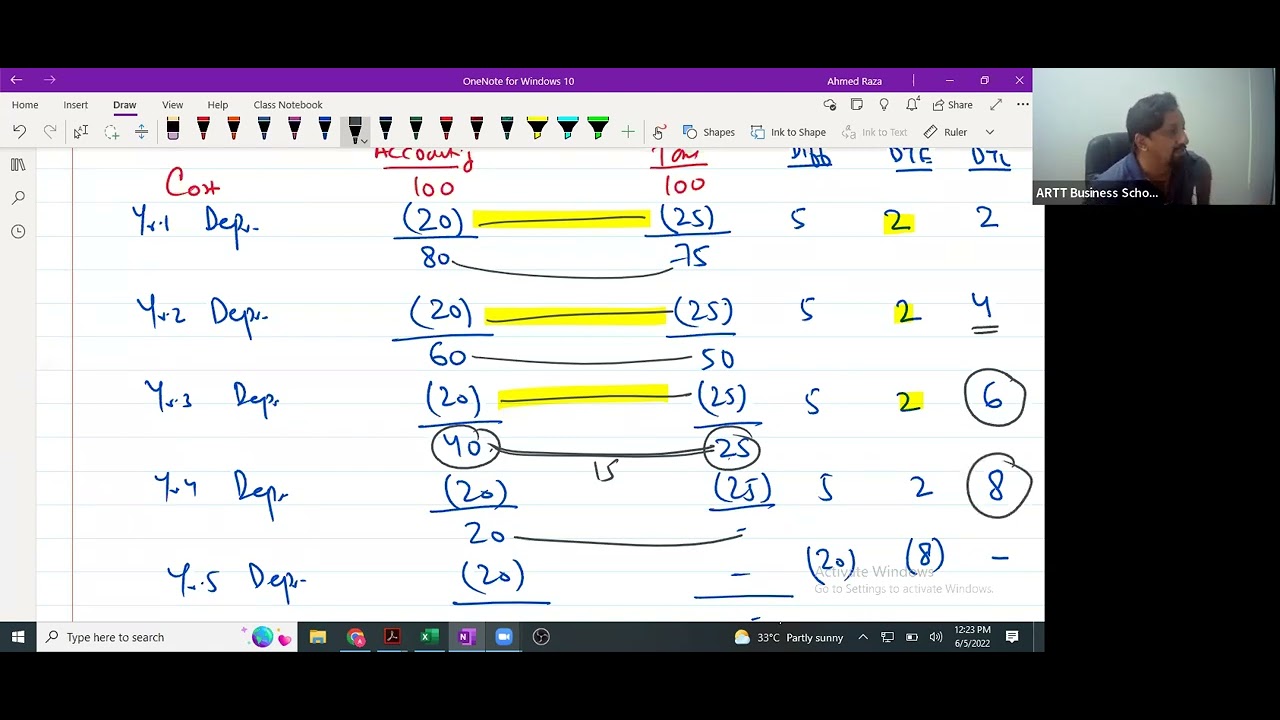 OneNote for Windows 10
Ahmed Raza
Home Insert Draw View Help Class Notebook Share
Shapes Ink to Shape Ink to Text Ruler
Accounting Diff DTE DTL
Cost 100 100
Yr.1 Depr. (20) (25) 5 2 2
80 75
Yr.2 Depr. (20) (25) 5 2 4
60 50
Yr.3 Depr (20) (25) 5 2 6
40 25
15
Yr.4 Depr (20) (25) 5 2 8
20 -
Yr.5 Depr. (20) - (20) (8) -
-
Activate Windows
Go to Settings to activate Windows.
Type here to search
33°C Partly sunny
12:23 PM
6/5/2022
ARTT Business Scho...